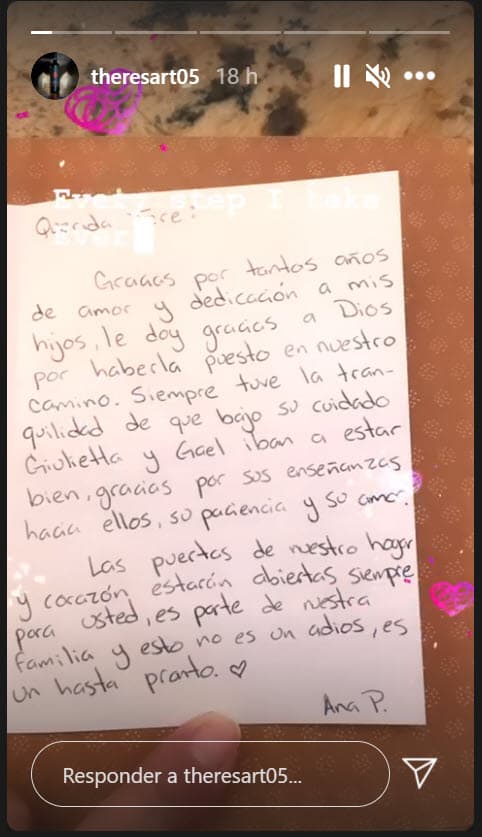 theresart05 18 h
Every step I take
Ever
Querida
Gracias por tantos años
de amor y dedicación a mis
hijos, le doy gracias a Dios
por haberla puesto en nuestro
camino. Siempre tuve la tran-
quilidad de que bajo su cuidado
Giulietta y Gael iban a estar
bien, gracias por sus enseñanzas
hacia ellos, su paciencia y su amor.
Las puertas de nuestro hogar
y corazón estarán abiertas siempre
para usted, es parte de nestra
familia y esto no es un adios, es
un hasta pronto. ♡
Ana P.
Responder a theresart05...